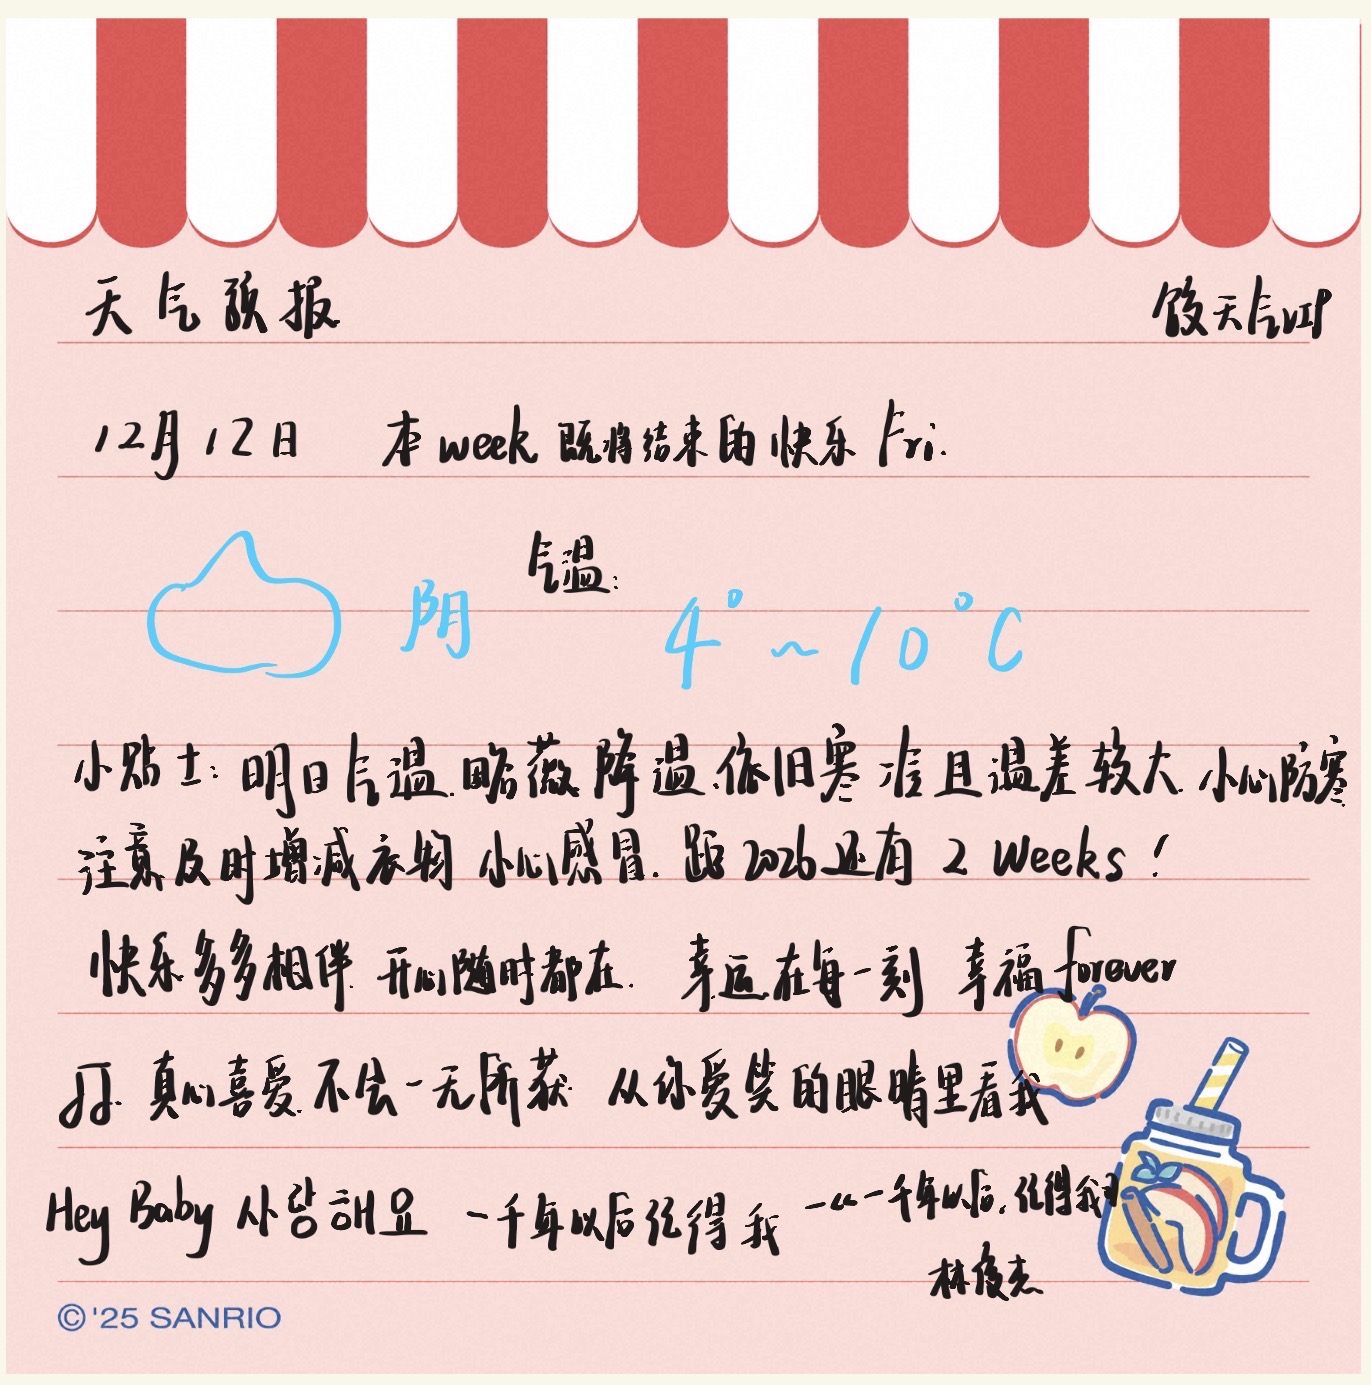 天气预报 饺天气VIP
12月12日 本week既将结束的快乐Fri.
气温:
阴 4°~10°C
小贴士:明日气温略薇降温.依旧寒冷且温差较大.小心防寒
注意及时增减衣物 小心感冒.距2026还有2 Weeks!
快乐多多相伴 开心随时都在. 幸运在每一刻 幸福forever
JJ. 真心喜爱 不会一无所获 从你爱笑的眼睛里看我
Hey Baby 사랑해요 一千年以后记得我 —《一千年以后.记得我》
林俊杰
© '25 SANRIO